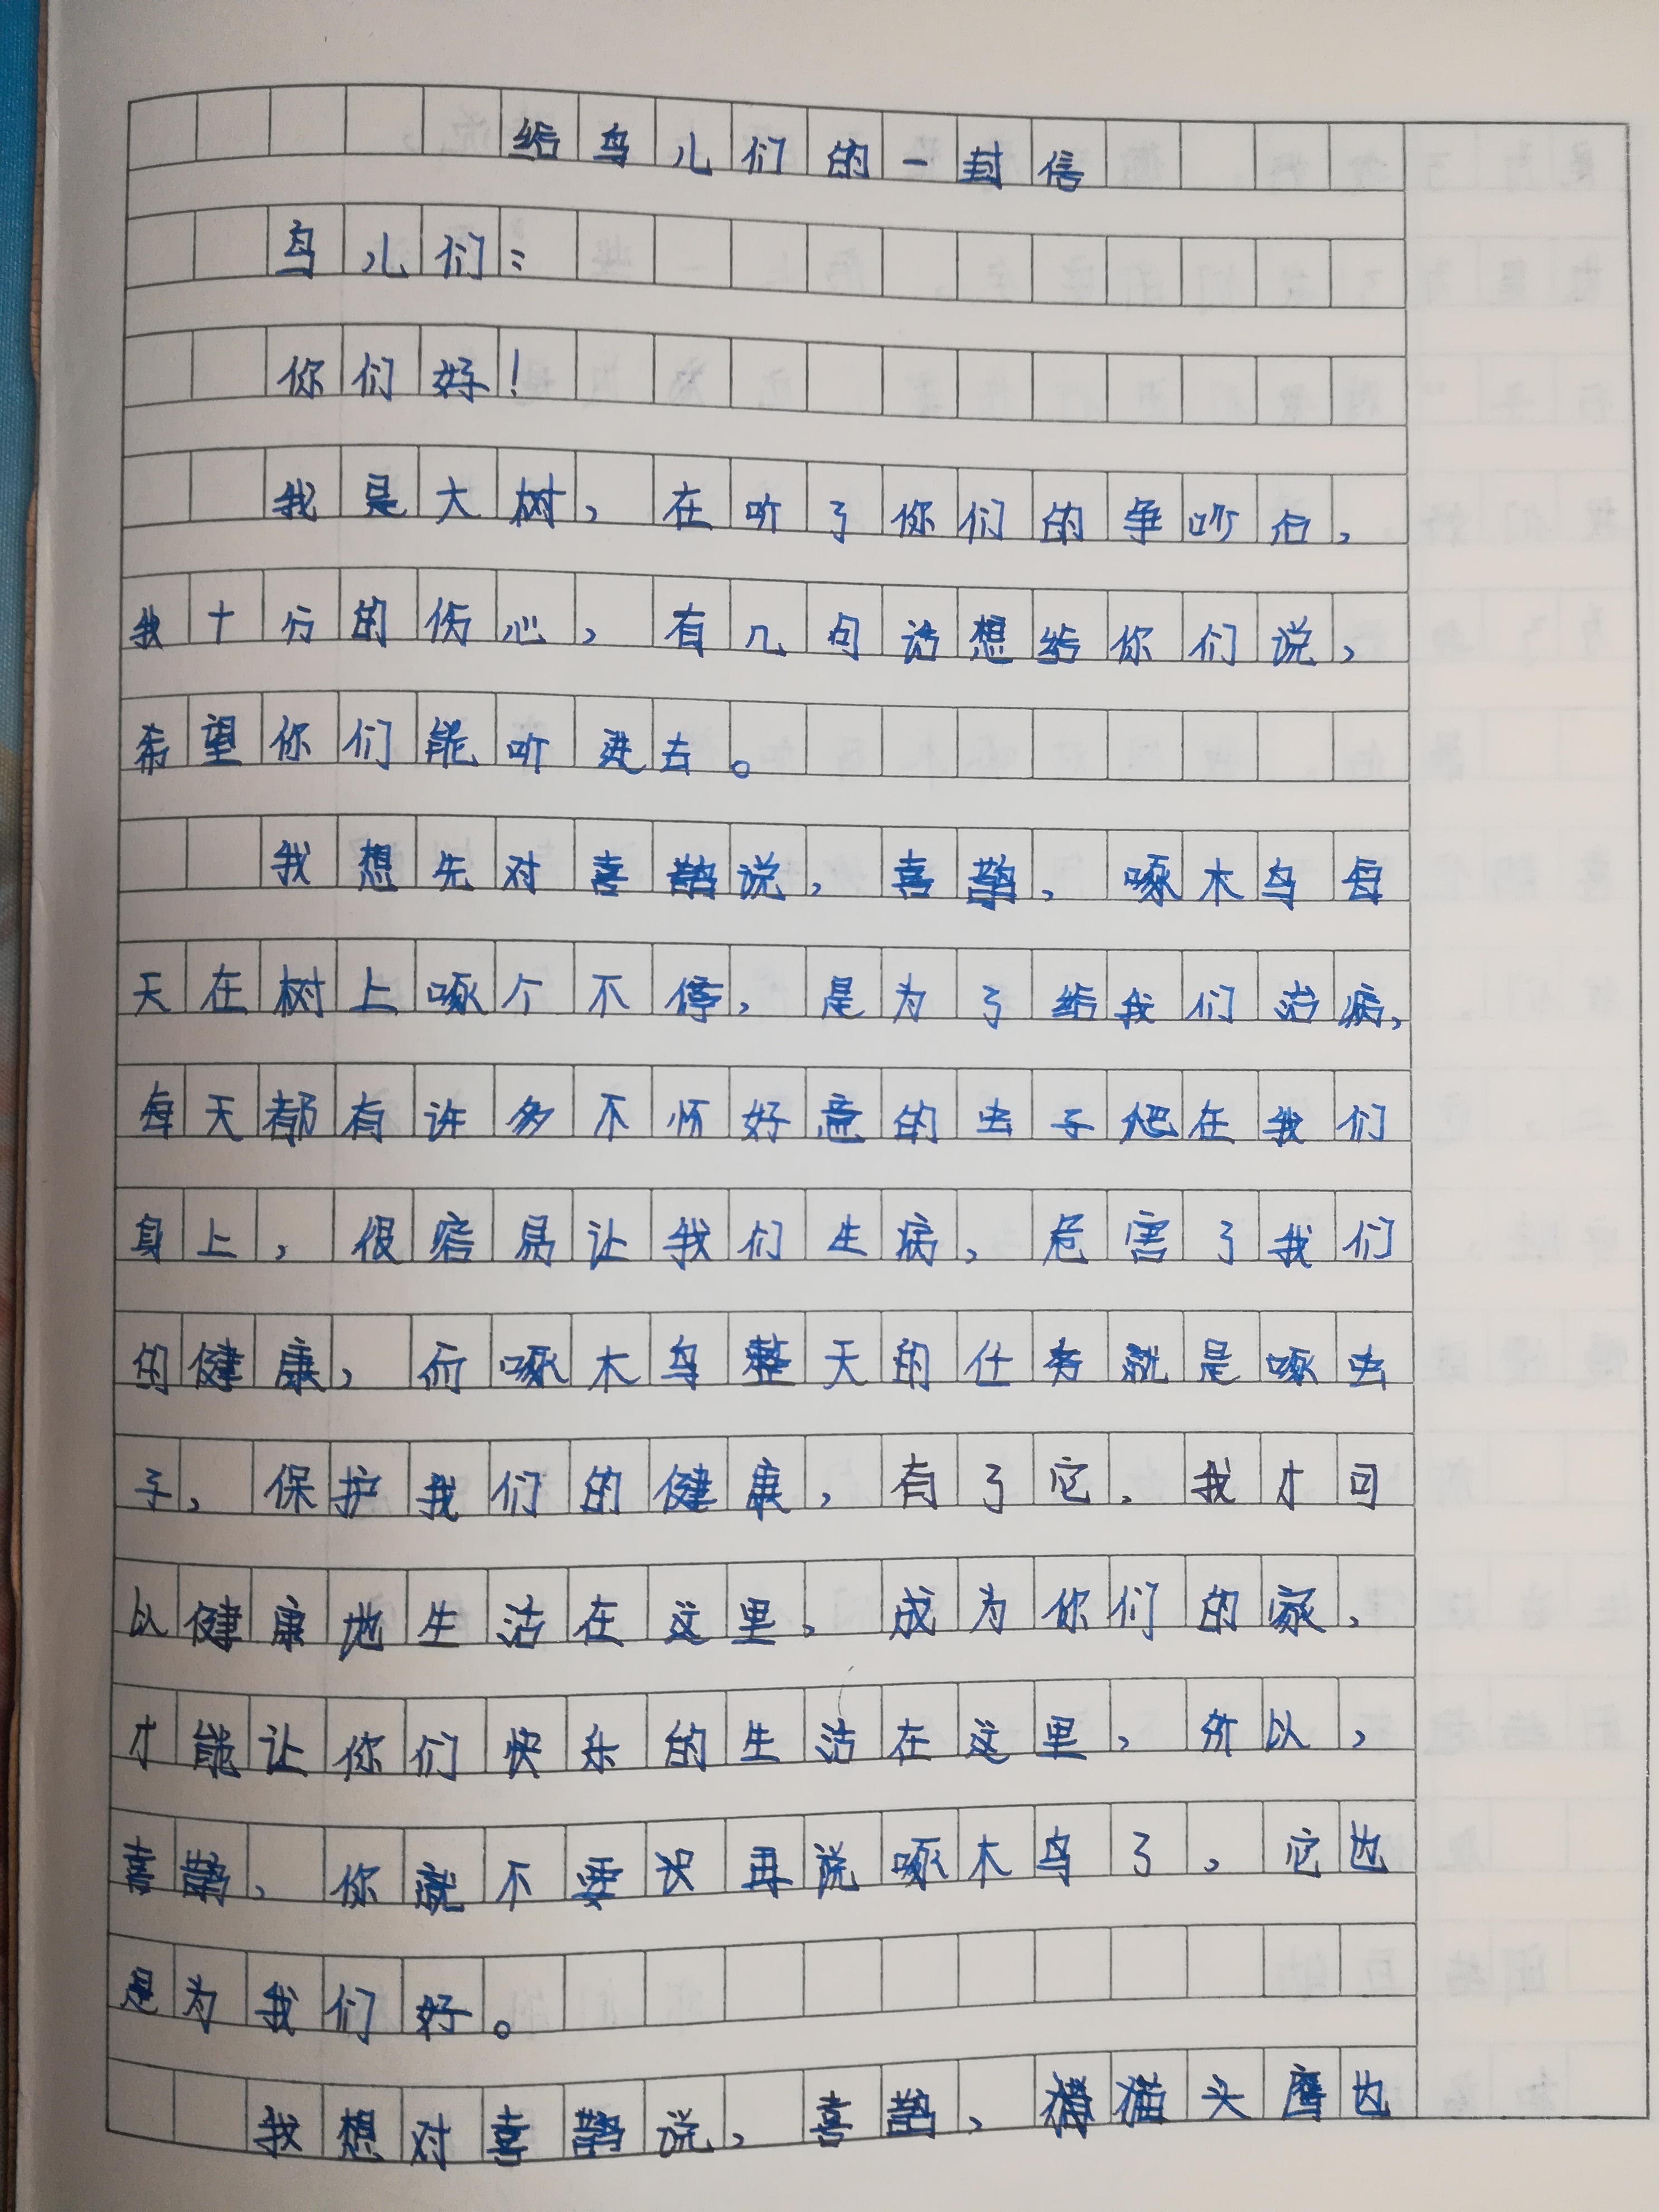 给鸟儿们的一封信
鸟儿们：
你们好！
我是大树，在听了你们的争吵后，
我十分的伤心，有几句话想给你们说，
希望你们能听进去。
我想先对喜鹊说，喜鹊，啄木鸟每
天在树上啄个不停，是为了给我们治病，
每天都有许多不怀好意的虫子爬在我们
身上，很容易让我们生病，危害了我们
的健康，而啄木鸟整天的任务就是啄虫
子，保护我们的健康，有了它，我才可
以健康地生活在这里，成为你们的家，
才能让你们快乐的生活在这里，所以，
喜鹊，你就不要再说啄木鸟了，它也
是为我们好。
我想对喜鹊说，喜鹊，猫头鹰也